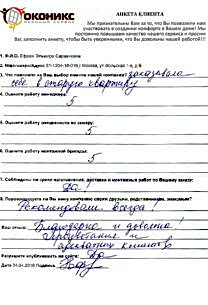 ОКОНИКС
АНКЕТА КЛИЕНТА
Мы признательны Вам за то, что Вы позволили нам
участвовать в создании комфорта в Вашем доме! Мы
постоянно повышаем качество нашего сервиса и просим
Вас заполнить анкету, чтобы быть уверенными, что Вы довольны нашей работой!!!
1. Ф.И.О.
2. г Москва, ул
3. Что повлияло на Ваш выбор именно нашей компании? заказывала
себе в вторую квартиру
4. Оцените работу менеджера:
5
5. Оцените работу специалиста по замеру:
5
6. Оцените работу монтажной бригады:
5
7. Соблюдены ли сроки изготовления, доставки и монтажных работ по Вашему заказу:
да!
8. Порекомендуете ли Вы нашу компанию своим друзьям, родственникам, знакомым?
Рекомендовали всегда!
Ваш отзыв: Благодарна и довольна!
Процветания и
адекватных клиентов
Разрешите опубликовать на сайте: Да
Дата Подпись